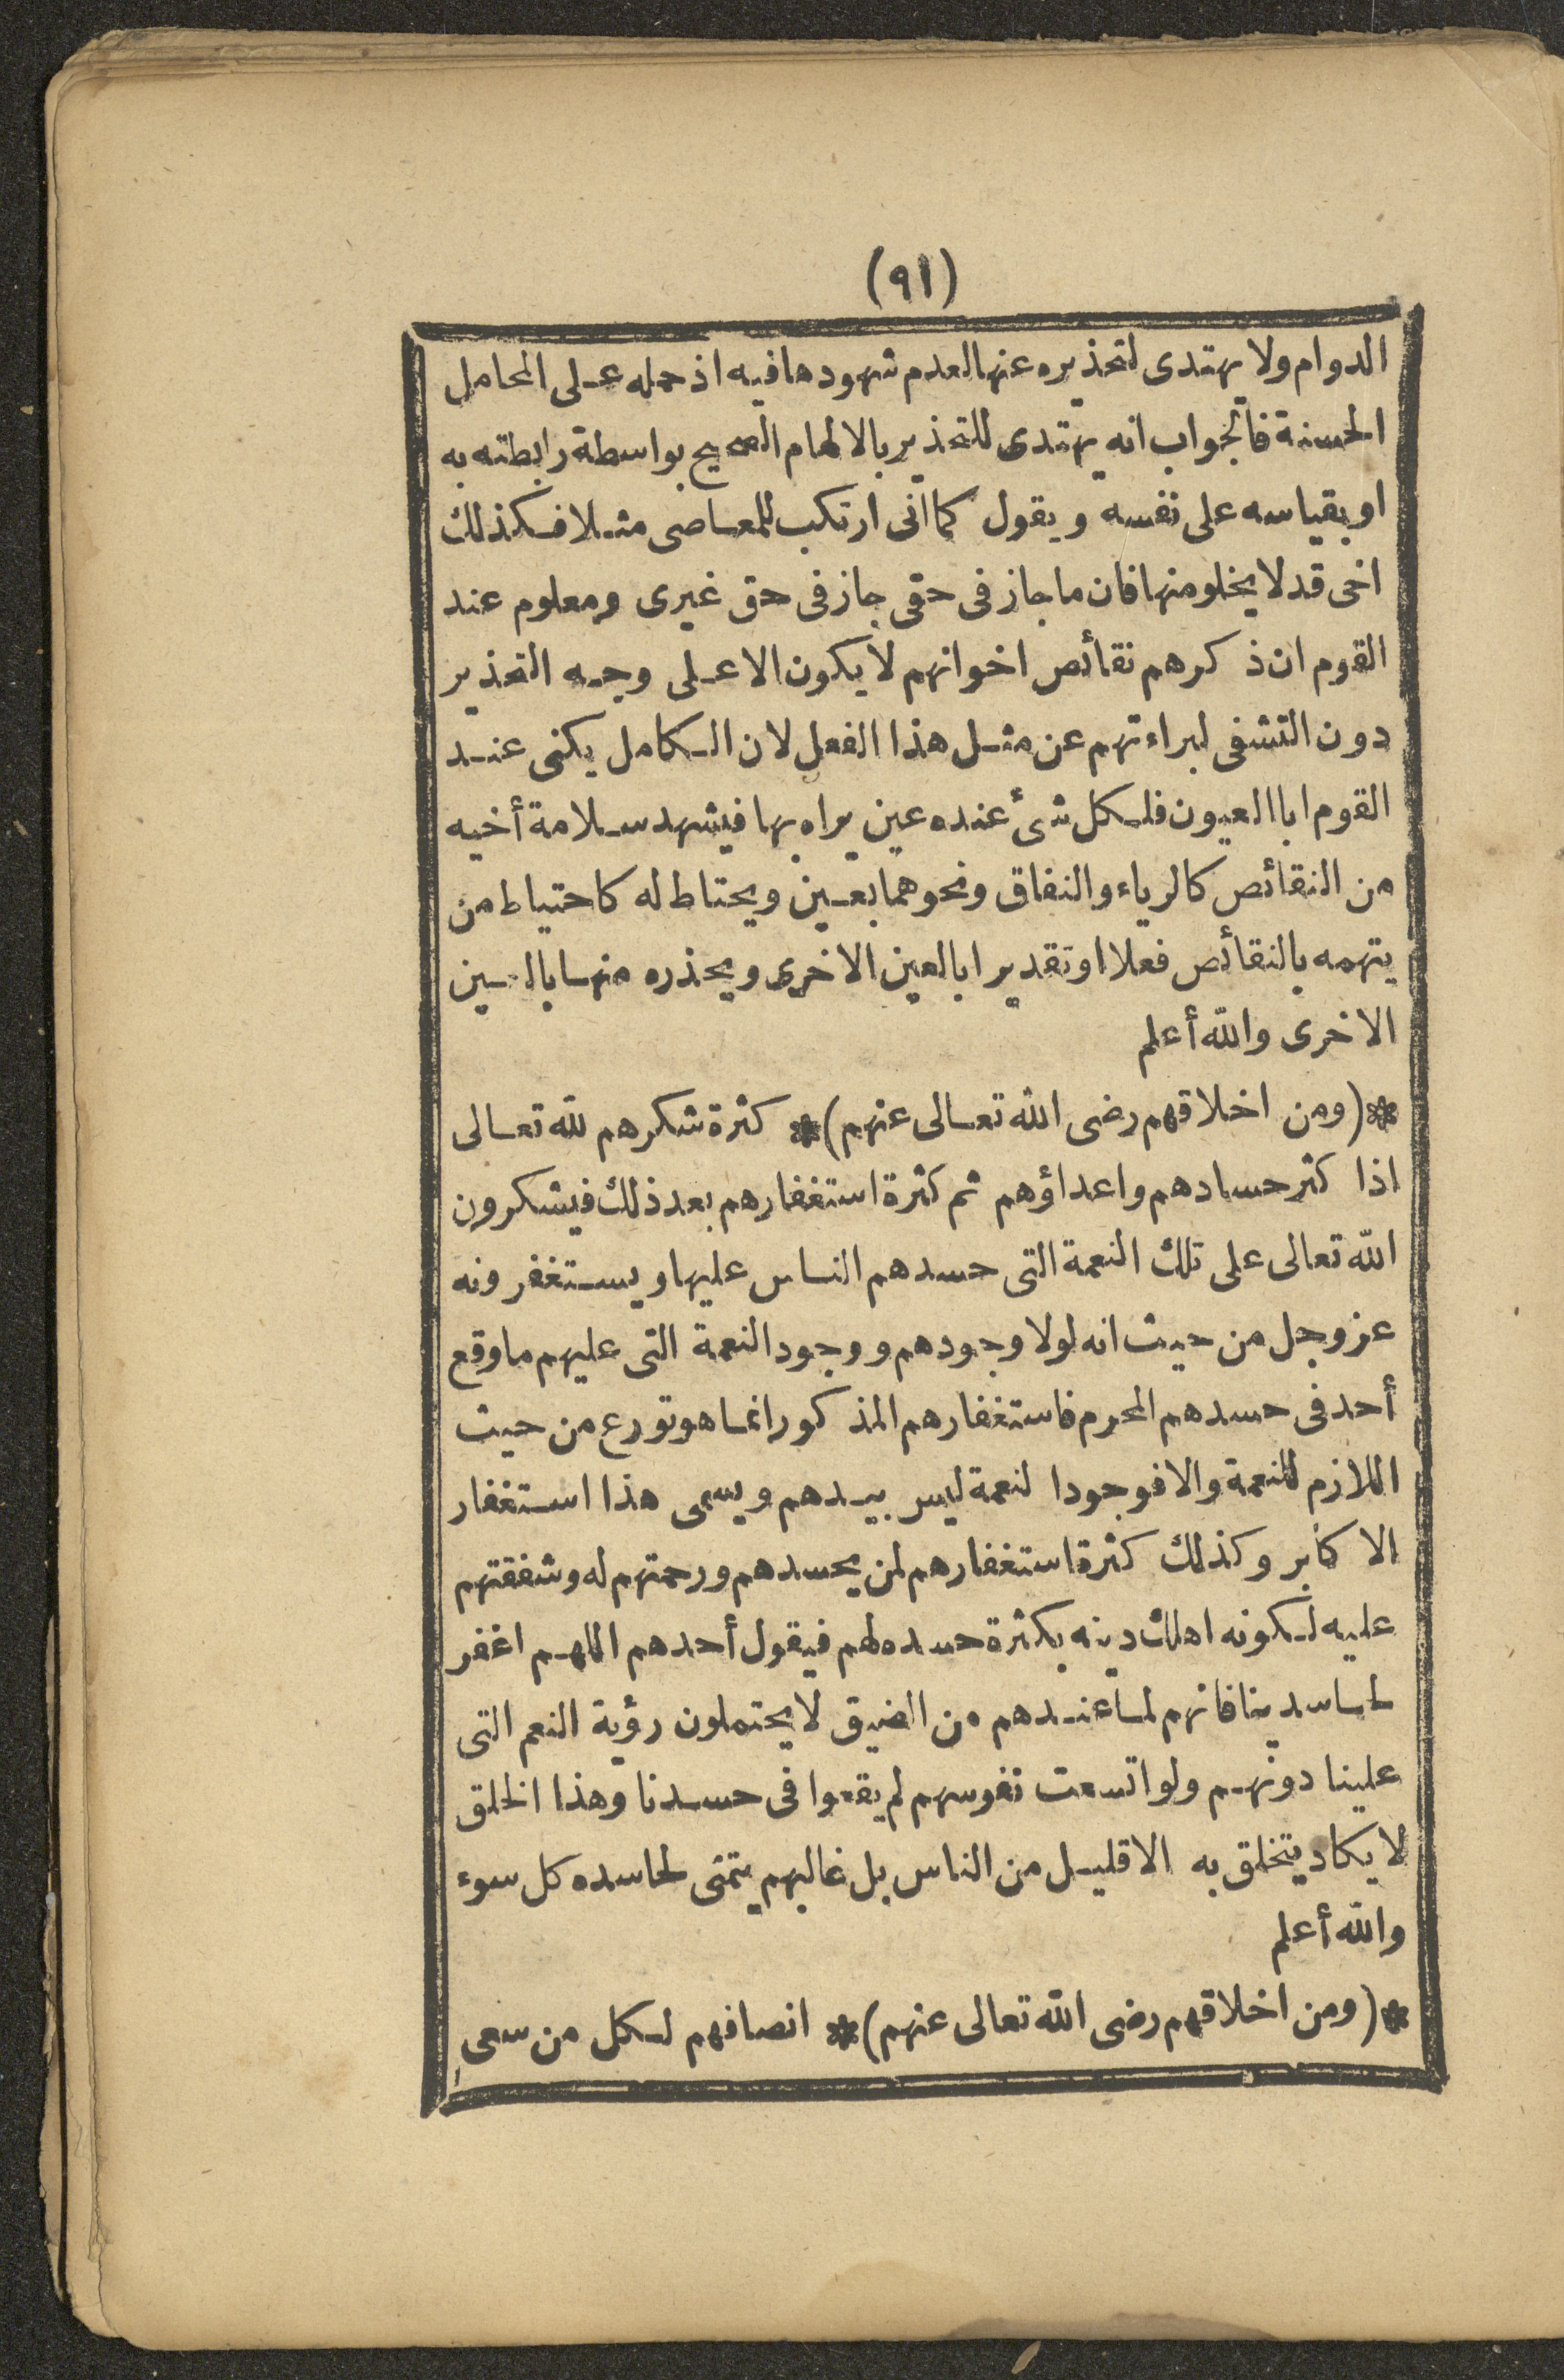 (٩١)
الدوام ولا يهتدى لتحذيره عنها لعدم شهودها فيه اذ حمله على المحامل
الحسنة فالجواب انه يهتدى للتحذير بالالهام الصحيح بواسطة رابطته به
او بقياسه على نفسه ويقول كما انى ارتكب للمعاصى مثلا فكذلك
اخى قد لا يخلو منها فان ما جاز فى حقى جاز فى حق غيرى ومعلوم عند
القوم ان ذكرهم نقائص اخوانهم لا يكون الا على وجه التحذير
دون التشفى لبراءتهم عن مثل هذا الفعل لان الكامل يكنى عند
القوم ابا العيون فلكل شئ عنده عين يراه بها فيشهد سلامة أخيه
من النقائص كالرياء والنفاق ونحوهما بعين ويحتاط له كاحتياط من
يتهمه بالنقائص فعلا او تقديرا بالعين الاخرى ويحذره منها بالعين
الاخرى والله أعلم
* (ومن اخلاقهم رضى الله تعالى عنهم) * كثرة شكرهم لله تعالى
اذا كثر حسادهم واعداؤهم ثم كثرة استغفارهم بعد ذلك فيشكرون
الله تعالى على تلك النعمة التى حسدهم الناس عليها ويستغفرونه
عز وجل من حيث انه لولا وجودهم ووجود النعمة التى عليهم ما وقع
أحد فى حسدهم المحرم فاستغفارهم المذكور انما هو تورع من حيث
اللازم للنعمة والا فوجودا لنعمة ليس بيدهم ويسمى هذا استغفار
الاكابر وكذلك كثرة استغفارهم لمن يحسدهم ورحمتهم له وشفقتهم
عليه لكونه اهلك دينه بكثرة حسده لهم فيقول أحدهم اللهم اغفر
لحاسدينا فانهم لما عندهم من الضيق لا يحتملون رؤية النعم التى
علينا دونهم ولو اتسعت نفوسهم لم يقعوا فى حسدنا وهذا الخلق
لا يكاد يتخلق به الا قليل من الناس بل غالبهم يتمنى لحاسده كل سوء
والله أعلم
* (ومن اخلاقهم رضى الله تعالى عنهم) * انصافهم لكل من سعى